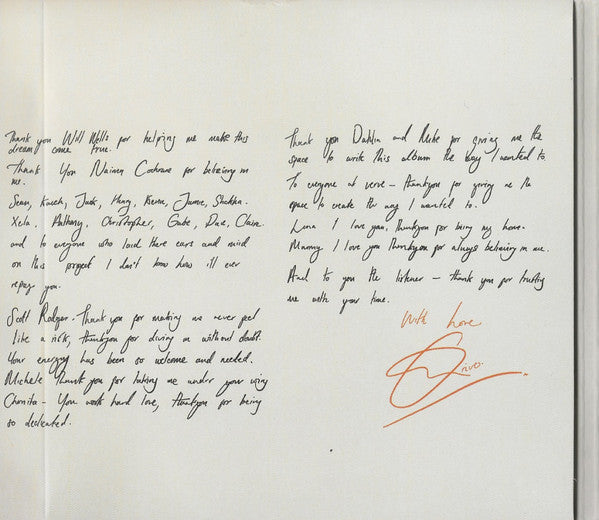 Thank you Will Wells for helping me make this
dream come true.
Thank You Nainey Cochrane for believing in
me.
Sean, Jack, Kiera, Jamie,
Xela, Anthony, Christopher, Gabe, Dave, Claire
and to everyone who laid there ears and mind
on this project I don't know how ill ever
repay you.
Scott Rodger - Thank you for making me never feel
like a risk, thankyou for diving in without doubt.
Your energy has been so welcome and needed.
Michele Thank you for taking me under your wing
Chenita - You work hard love, thankyou for being
so dedicated.
Thank you Dahlia and Mike for giving me the
space to write this album the way I wanted to.
To everyone at verve - thankyou for giving me the
space to create the way I wanted to.
Luna I love you, thankyou for being my home.
Mammy I love you thankyou for always believing in me.
And to you the listener - thank you for trusting
me with your time.
With Love